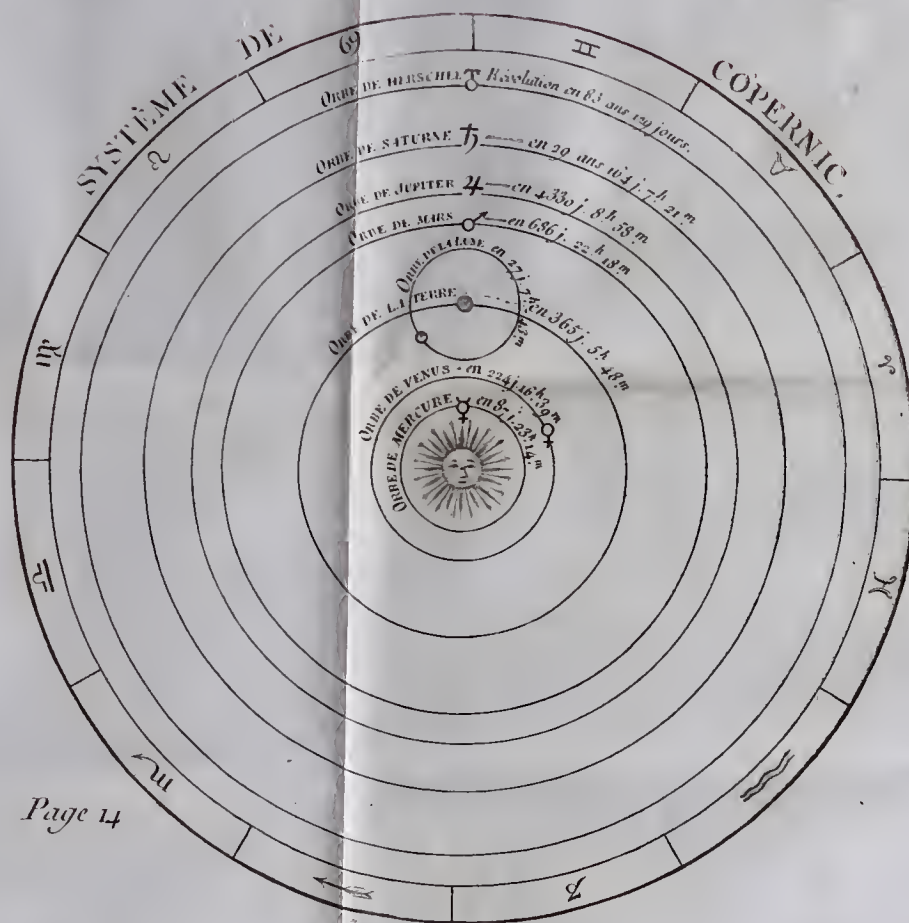 SYSTÈME DE COPERNIC.
ORBE DE HERSCHEL Révolution en 83 ans 129 jours.
ORBE DE SATURNE ♄ en 29 ans 164 j. 7 h 21 m
ORBE DE JUPITER ♃ en 4330 j. 8 h 38 m
ORBE DE MARS ♂ en 686 j. 22 h 18 m
ORBE DE LA LUNE en 27 j. 7 h 43 m
ORBE DE LA TERRE en 365 j. 5 h 48 m
ORBE DE VENUS en 224 j. 16 h 39 m
ORBE DE MERCURE ☿ en 87 j. 23 h 14 m
Page 14